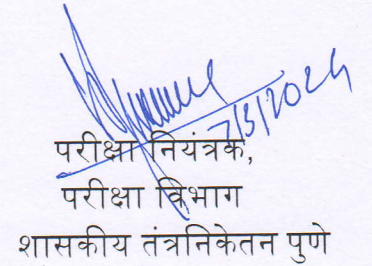 7/3/2024
परीक्षा नियंत्रक,
परीक्षा विभाग
शासकीय तंत्रनिकेतन पुणे